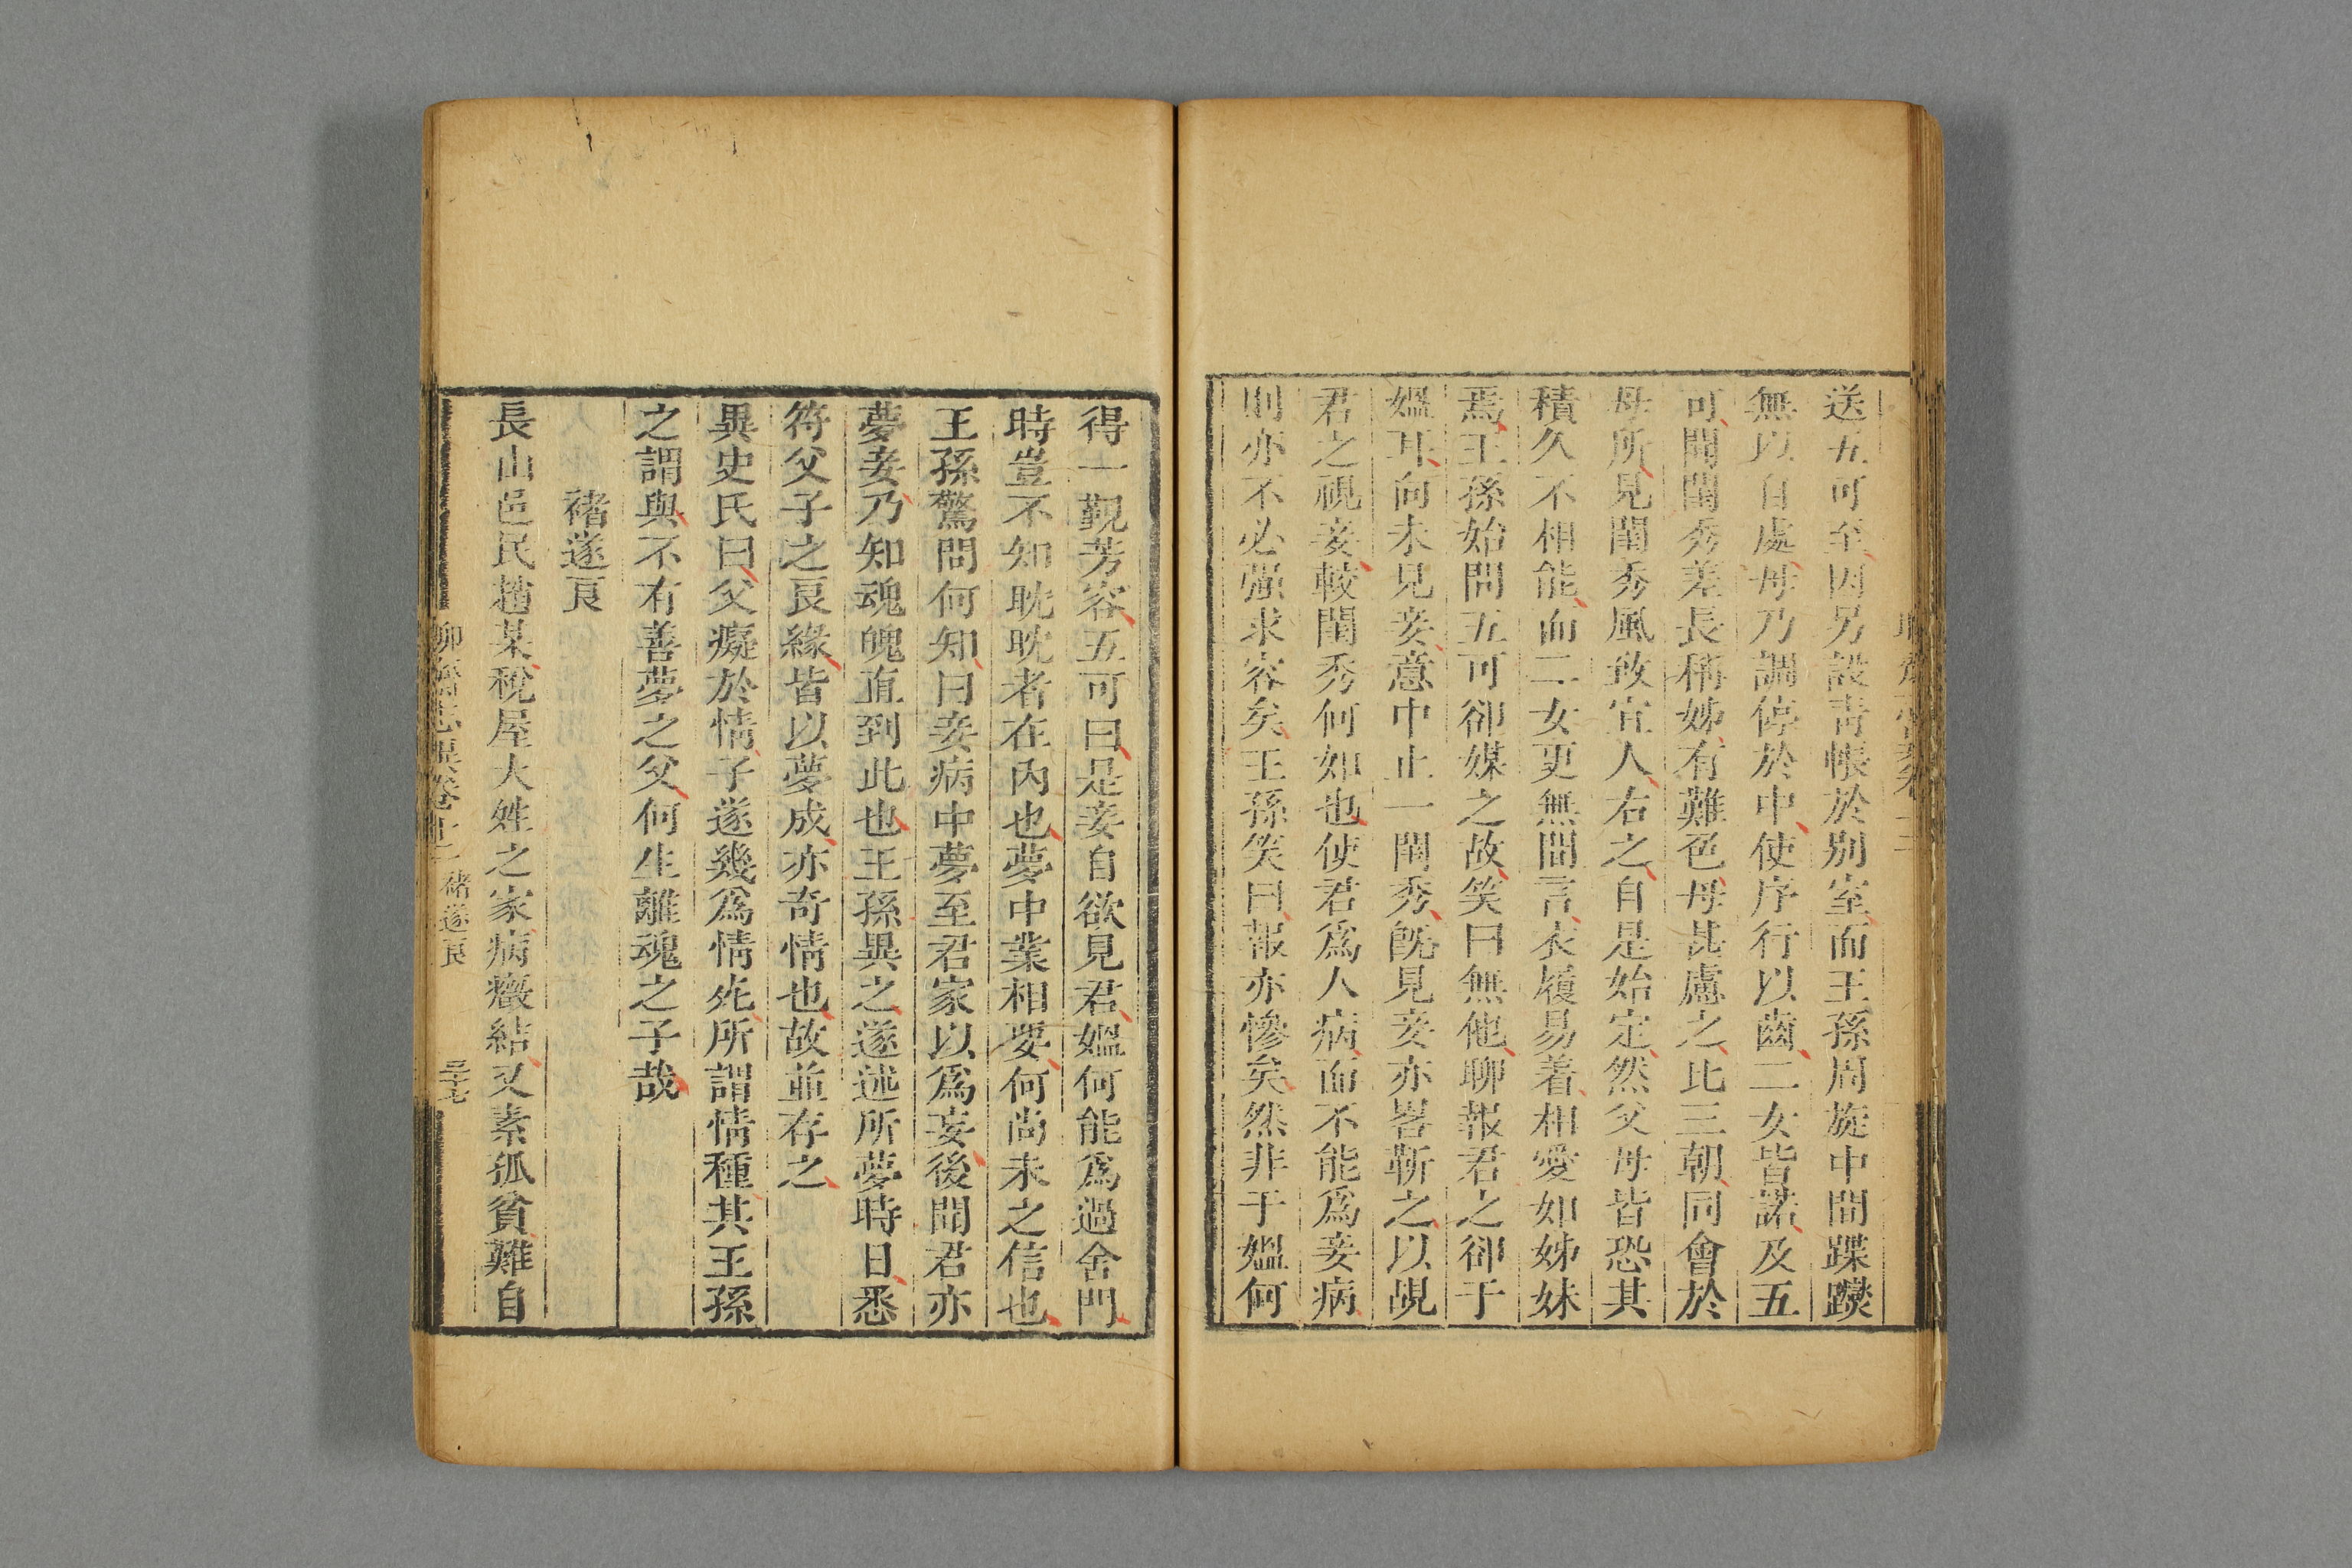 送五可至因另設靑帳於別室而王孫周旋中間蹀躞
無以自處母乃調停於中使序行以齒二女皆諾及五
可聞閨秀差長稱姊有難色母甚慮之比三朝同會於
母所見閨秀風致宜人右之自是始定然父母皆恐其
積久不相能而二女更無間言衣履易着相愛如姊妹
焉王孫始問五可卻媒之故笑曰無他聊報君之卻于
媼耳向未見妾意中止一閨秀旣見妾亦畧靳之以覘
君之視妾較閨秀何如也使君爲人病而不能爲妾病
則亦不必强求容矣王孫笑曰報亦慘矣然非于媼何
得一覯芳容五可曰是妾自欲見君媼何能爲過舍門
時豈不知眈眈者在內也夢中業相要何尚未之信也
王孫驚問何知曰妾病中夢至君家以爲妄後聞君亦
夢妾乃知魂魄直到此也王孫異之遂述所夢時日悉
符父子之良緣皆以夢成亦奇情也故並存之
異史氏曰父癡於情子遂幾爲情死所謂情種其王孫
之謂與不有善夢之父何生離魂之子哉
褚遂良
長山邑民趙某稅屋大姓之家病癥結又素孤貧難自
聊齋志異卷十二 褚遂良 三十七